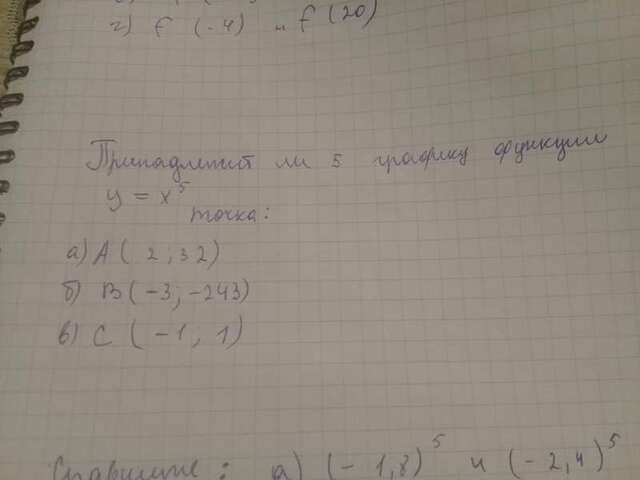 г) f (-4) и f(20)
Принадлежит ли 5 графику функции
y = x⁵
точка:
а) A ( 2 ; 32)
б) B (-3; -243)
в) C ( -1, 1)
Сравните: а) (- 1,8)⁵ и (- 2,4)⁵